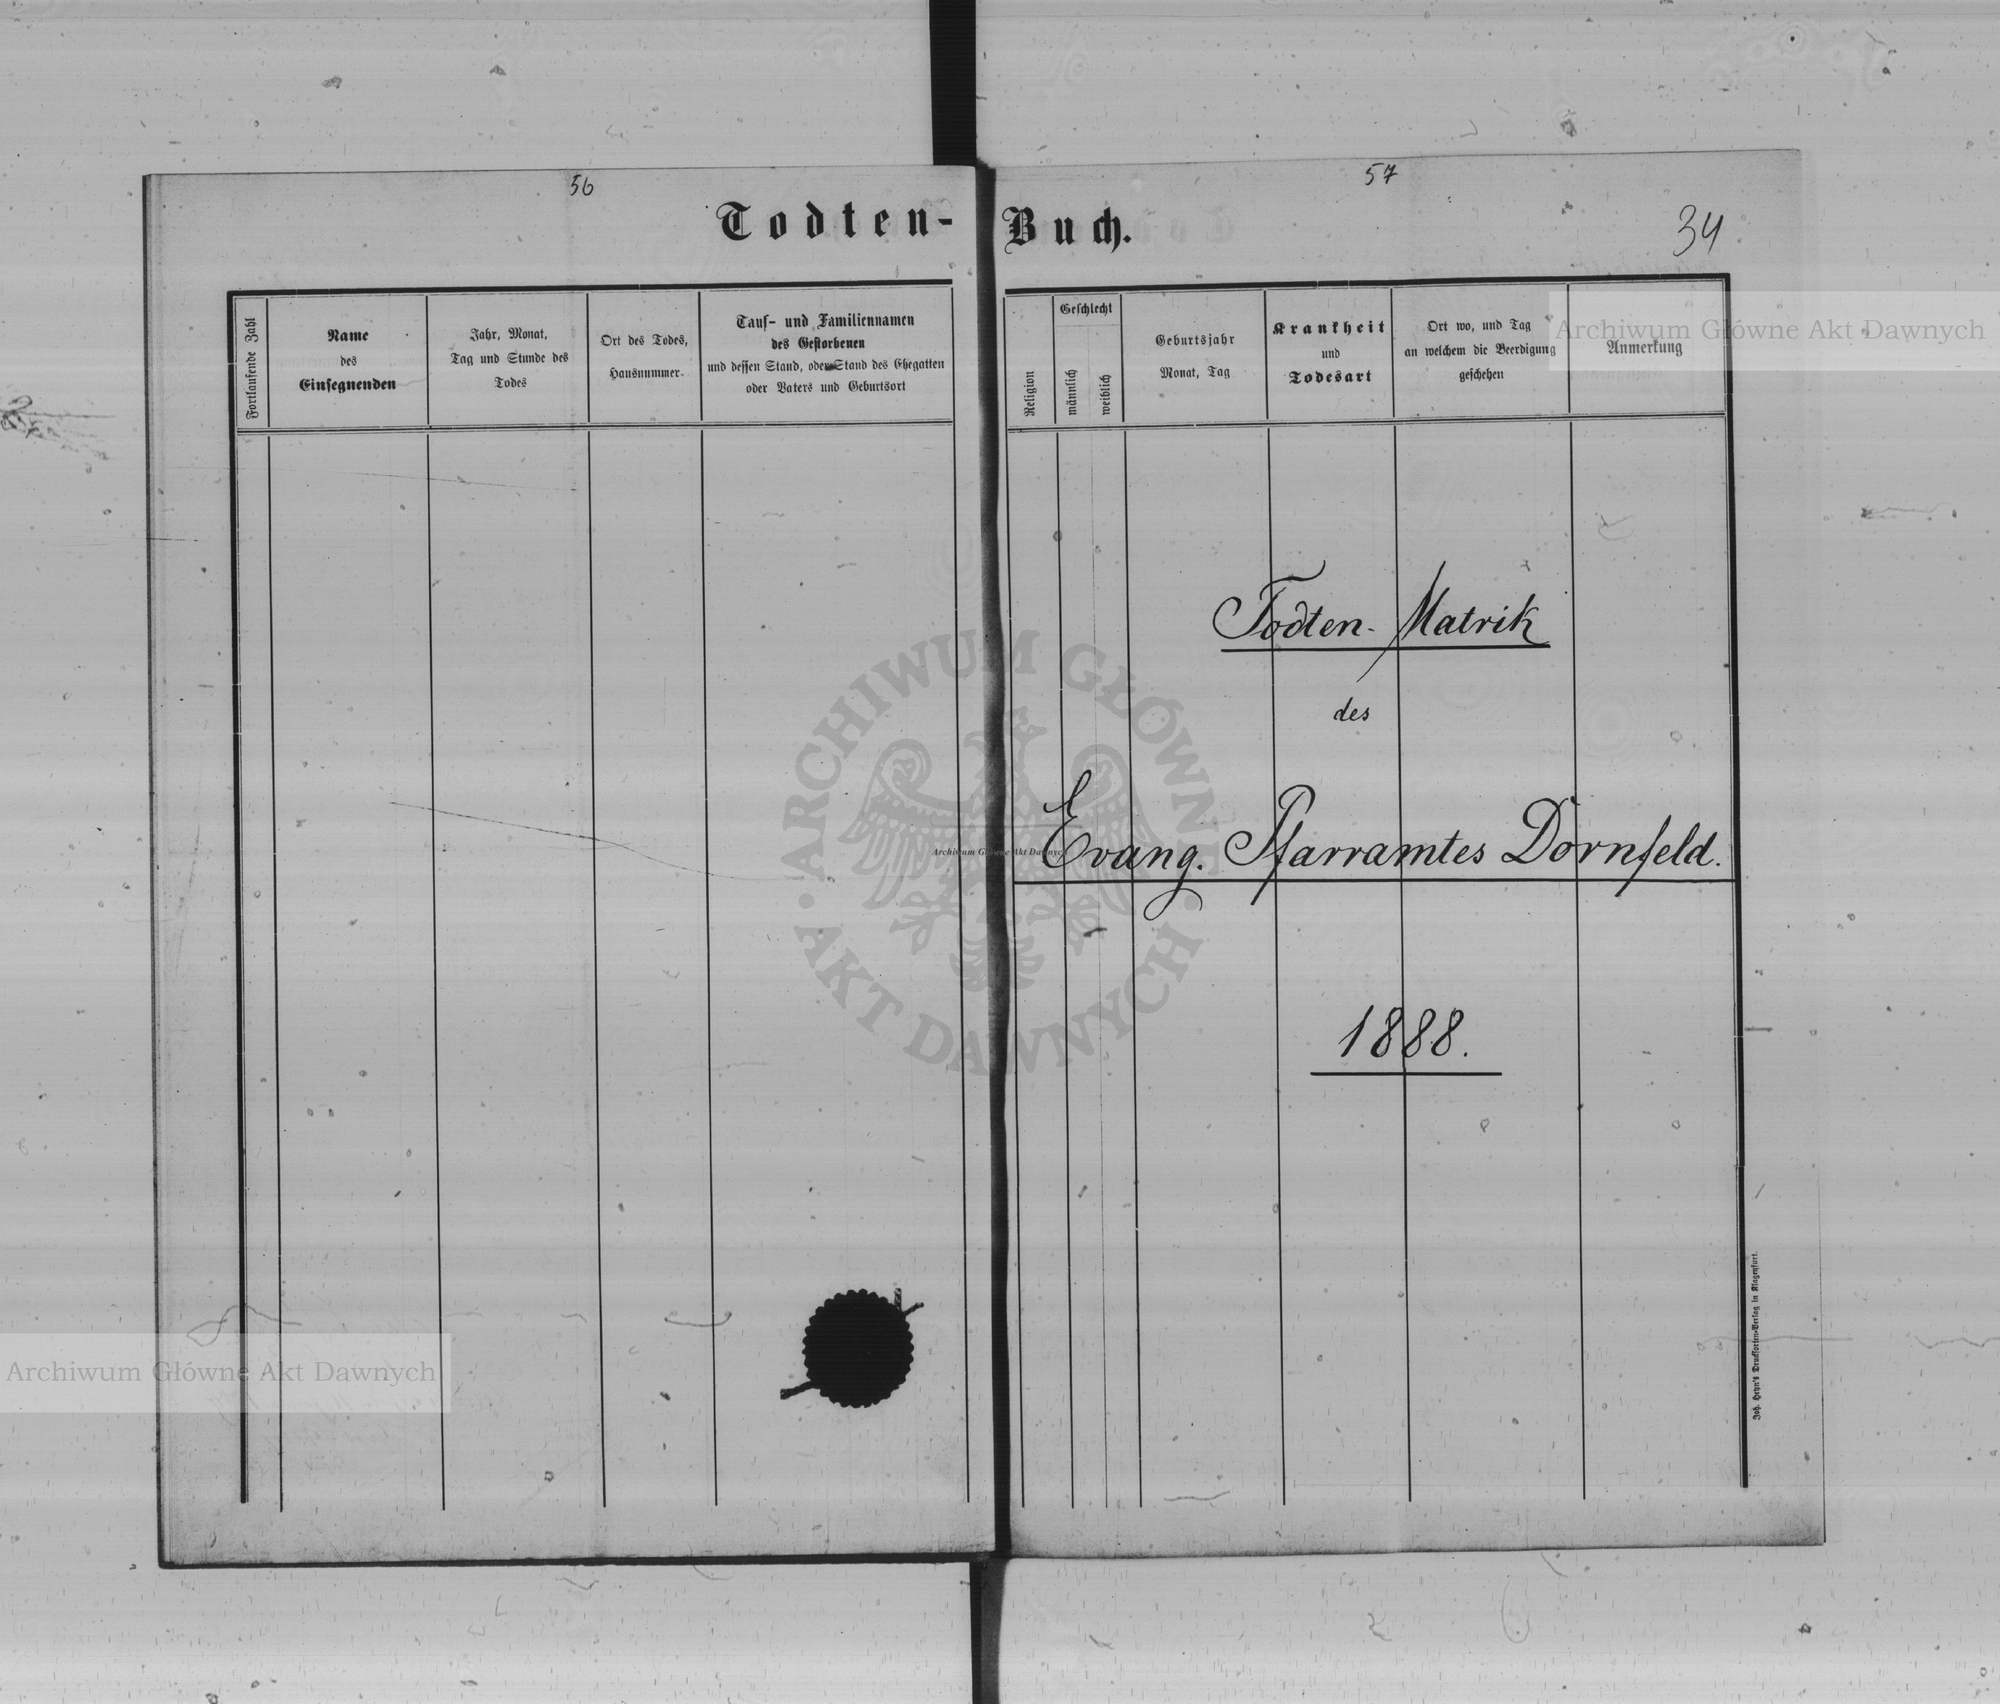 56
57
34
Todten-Buch.
Fortlaufende Zahl
Name
des
Einsegnenden
Jahr, Monat,
Tag und Stunde des
Todes
Ort des Todes,
Hausnummer.
Tauf- und Familiennamen
des Gestorbenen
und dessen Stand, oder Stand des Ehegatten
oder Vaters und Geburtsort
Religion
Geschlecht
männlich
weiblich
Geburtsjahr
Monat, Tag
Krankheit
und
Todesart
Ort wo, und Tag
an welchem die Beerdigung
geschehen
Anmerkung
Todten-Matrik
des
Evang. Pfarramtes Dornfeld.
1888.
Joh. Heyn's Drucksorten-Verlag in Klagenfurt.
Archiwum Główne Akt Dawnych
ARCHIWUM GŁÓWNE · AKT DAWNYCH ·
Archiwum Główne Akt Dawnych
Archiwum Główne Akt Dawnych